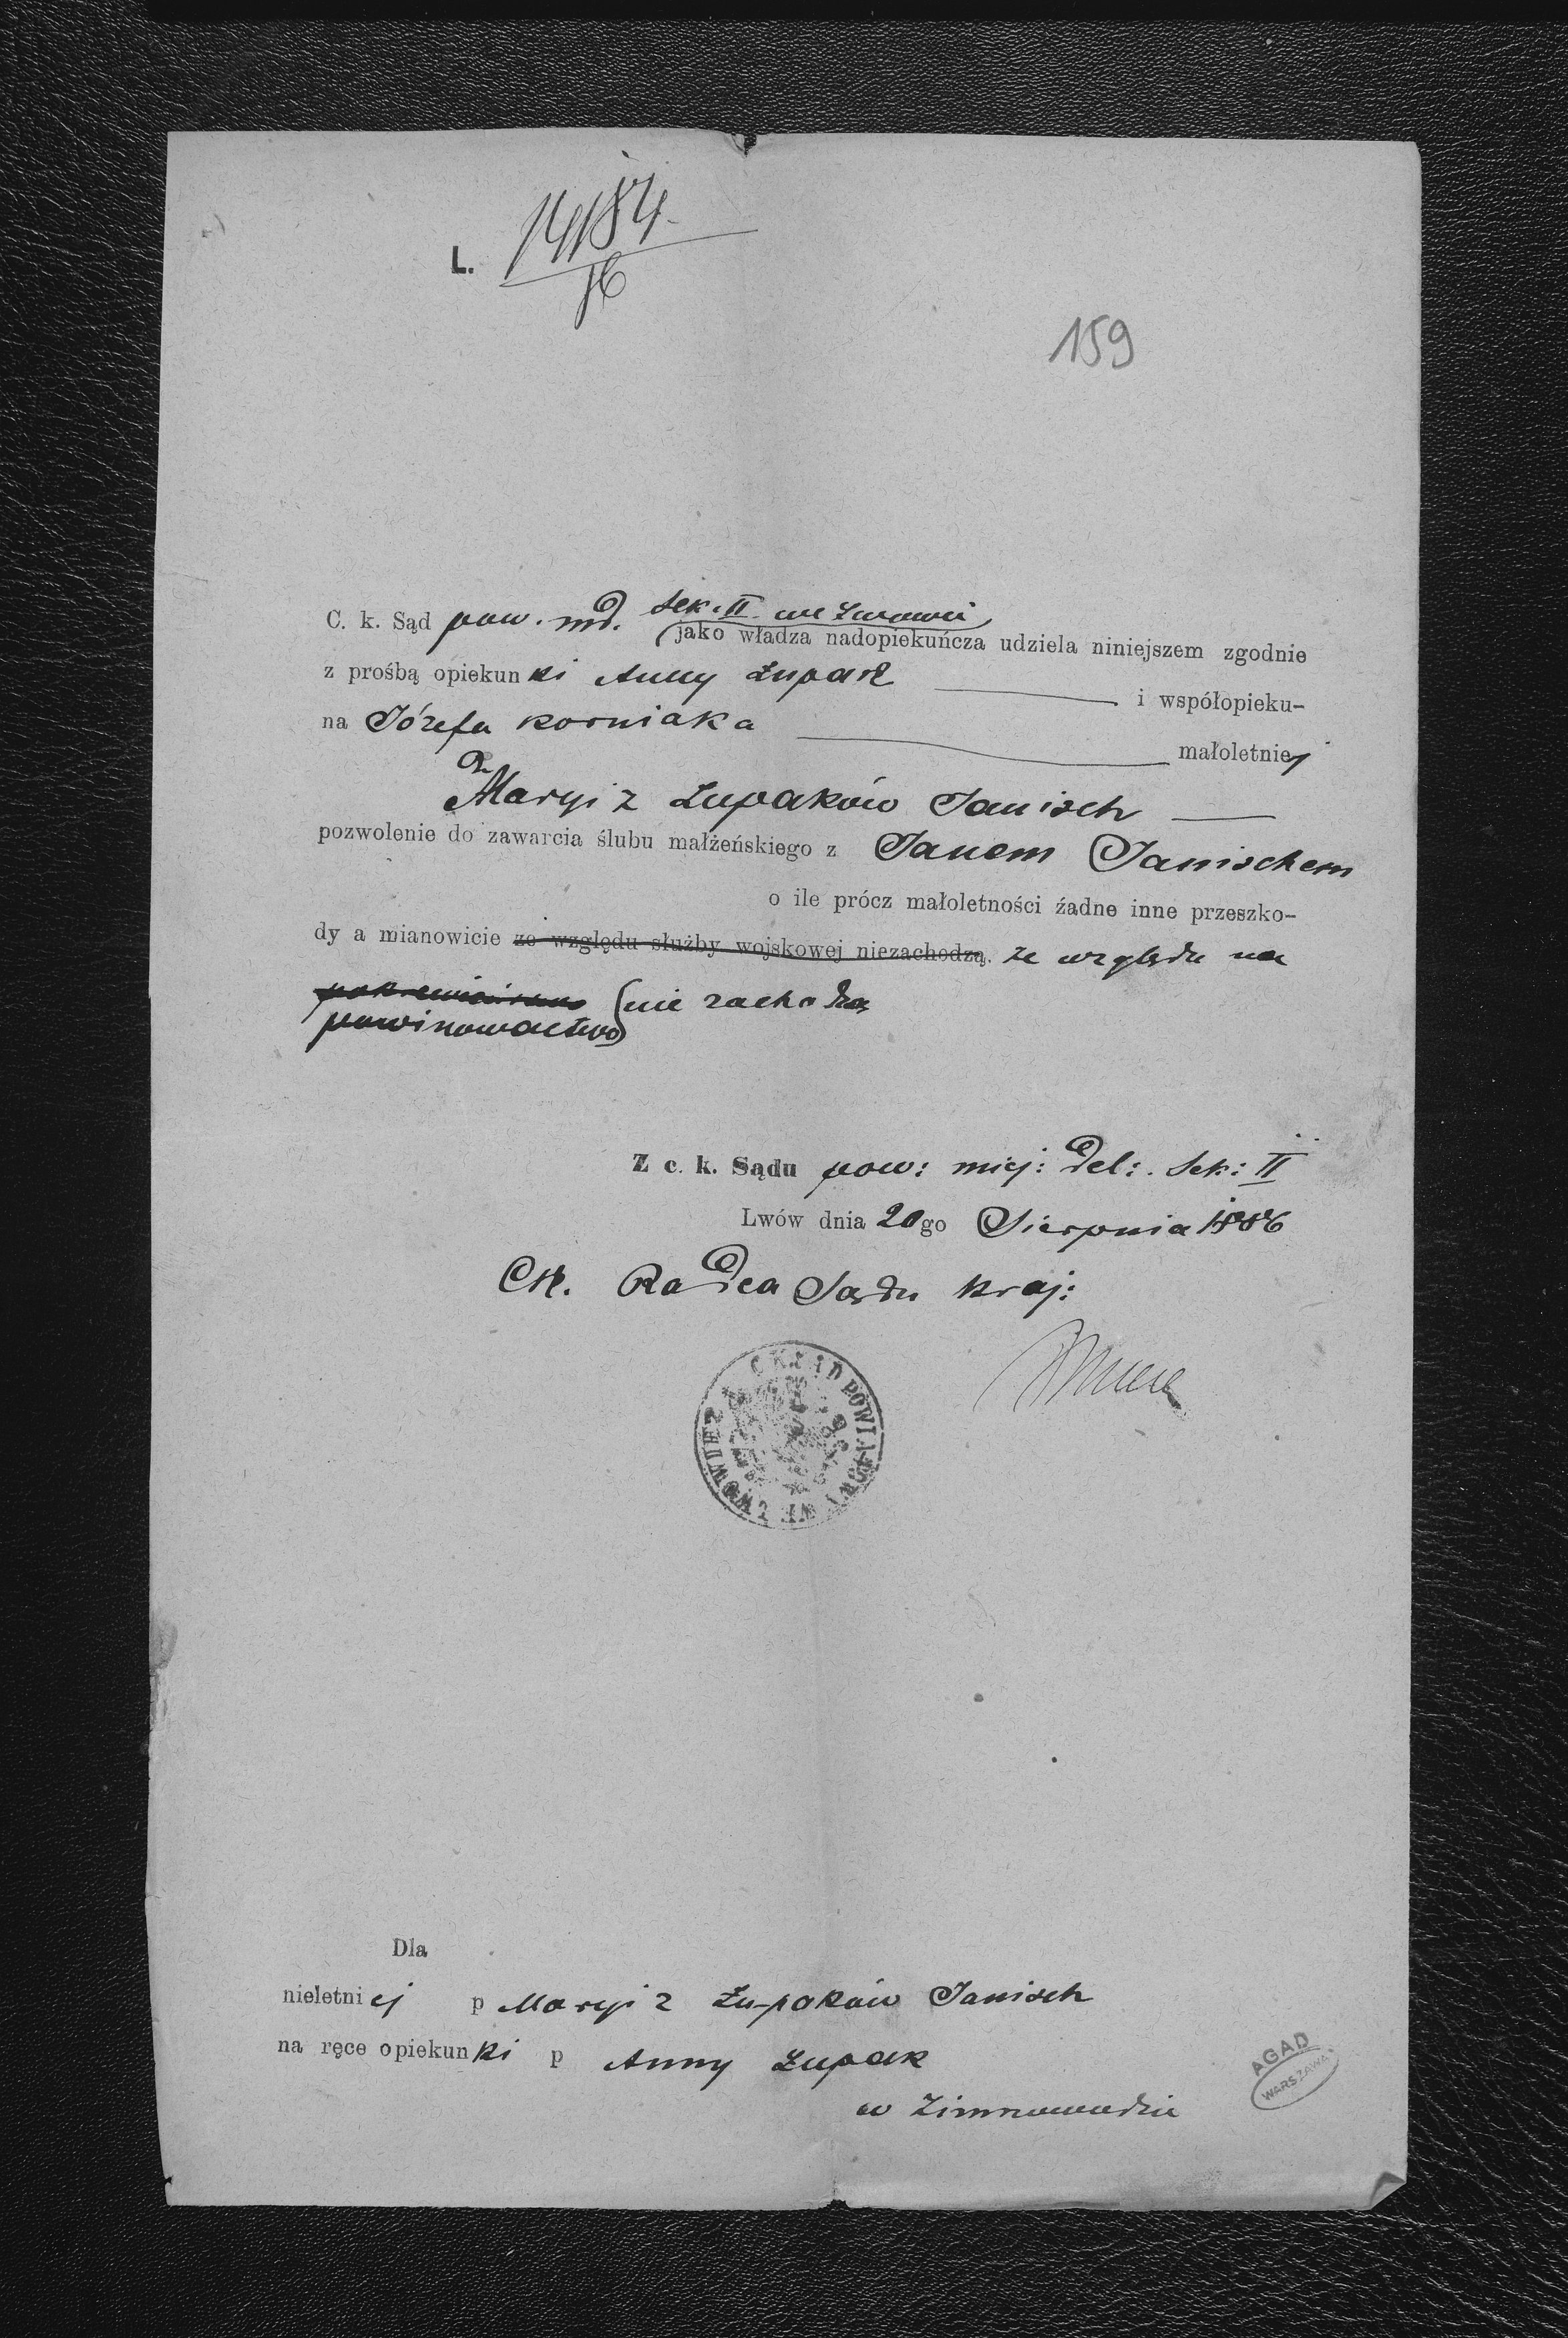 L. 14184/86
159
C. k. Sąd pow. md. Sek. II. we Lwowie
jako władza nadopiekuńcza udziela niniejszem zgodnie
z prośbą opiekunki Anny Łupak i współopieku-
na Józefa Korniaka małoletniej
Maryi z Łupaków Janisch
pozwolenie do zawarcia ślubu małżeńskiego z Janem Janischem
o ile prócz małoletności źadne inne przeszko-
dy a mianowicie ze względu służby wojskowej niezachodzą. ze względu na
powinowactwo nie zachodzą
Z c. k. Sądu pow: miej: del: Sek: II
Lwów dnia 20go Sierpnia 1886
Ck. Radca Sądu kraj:
C K SĄD POWIATOWY WE LWOWIE
Dla
nieletniej p Maryi z Łupaków Janisch
na ręce opiekunki p Anny Łupak
w Zimnowodzie
AGAD
WARSZAWA